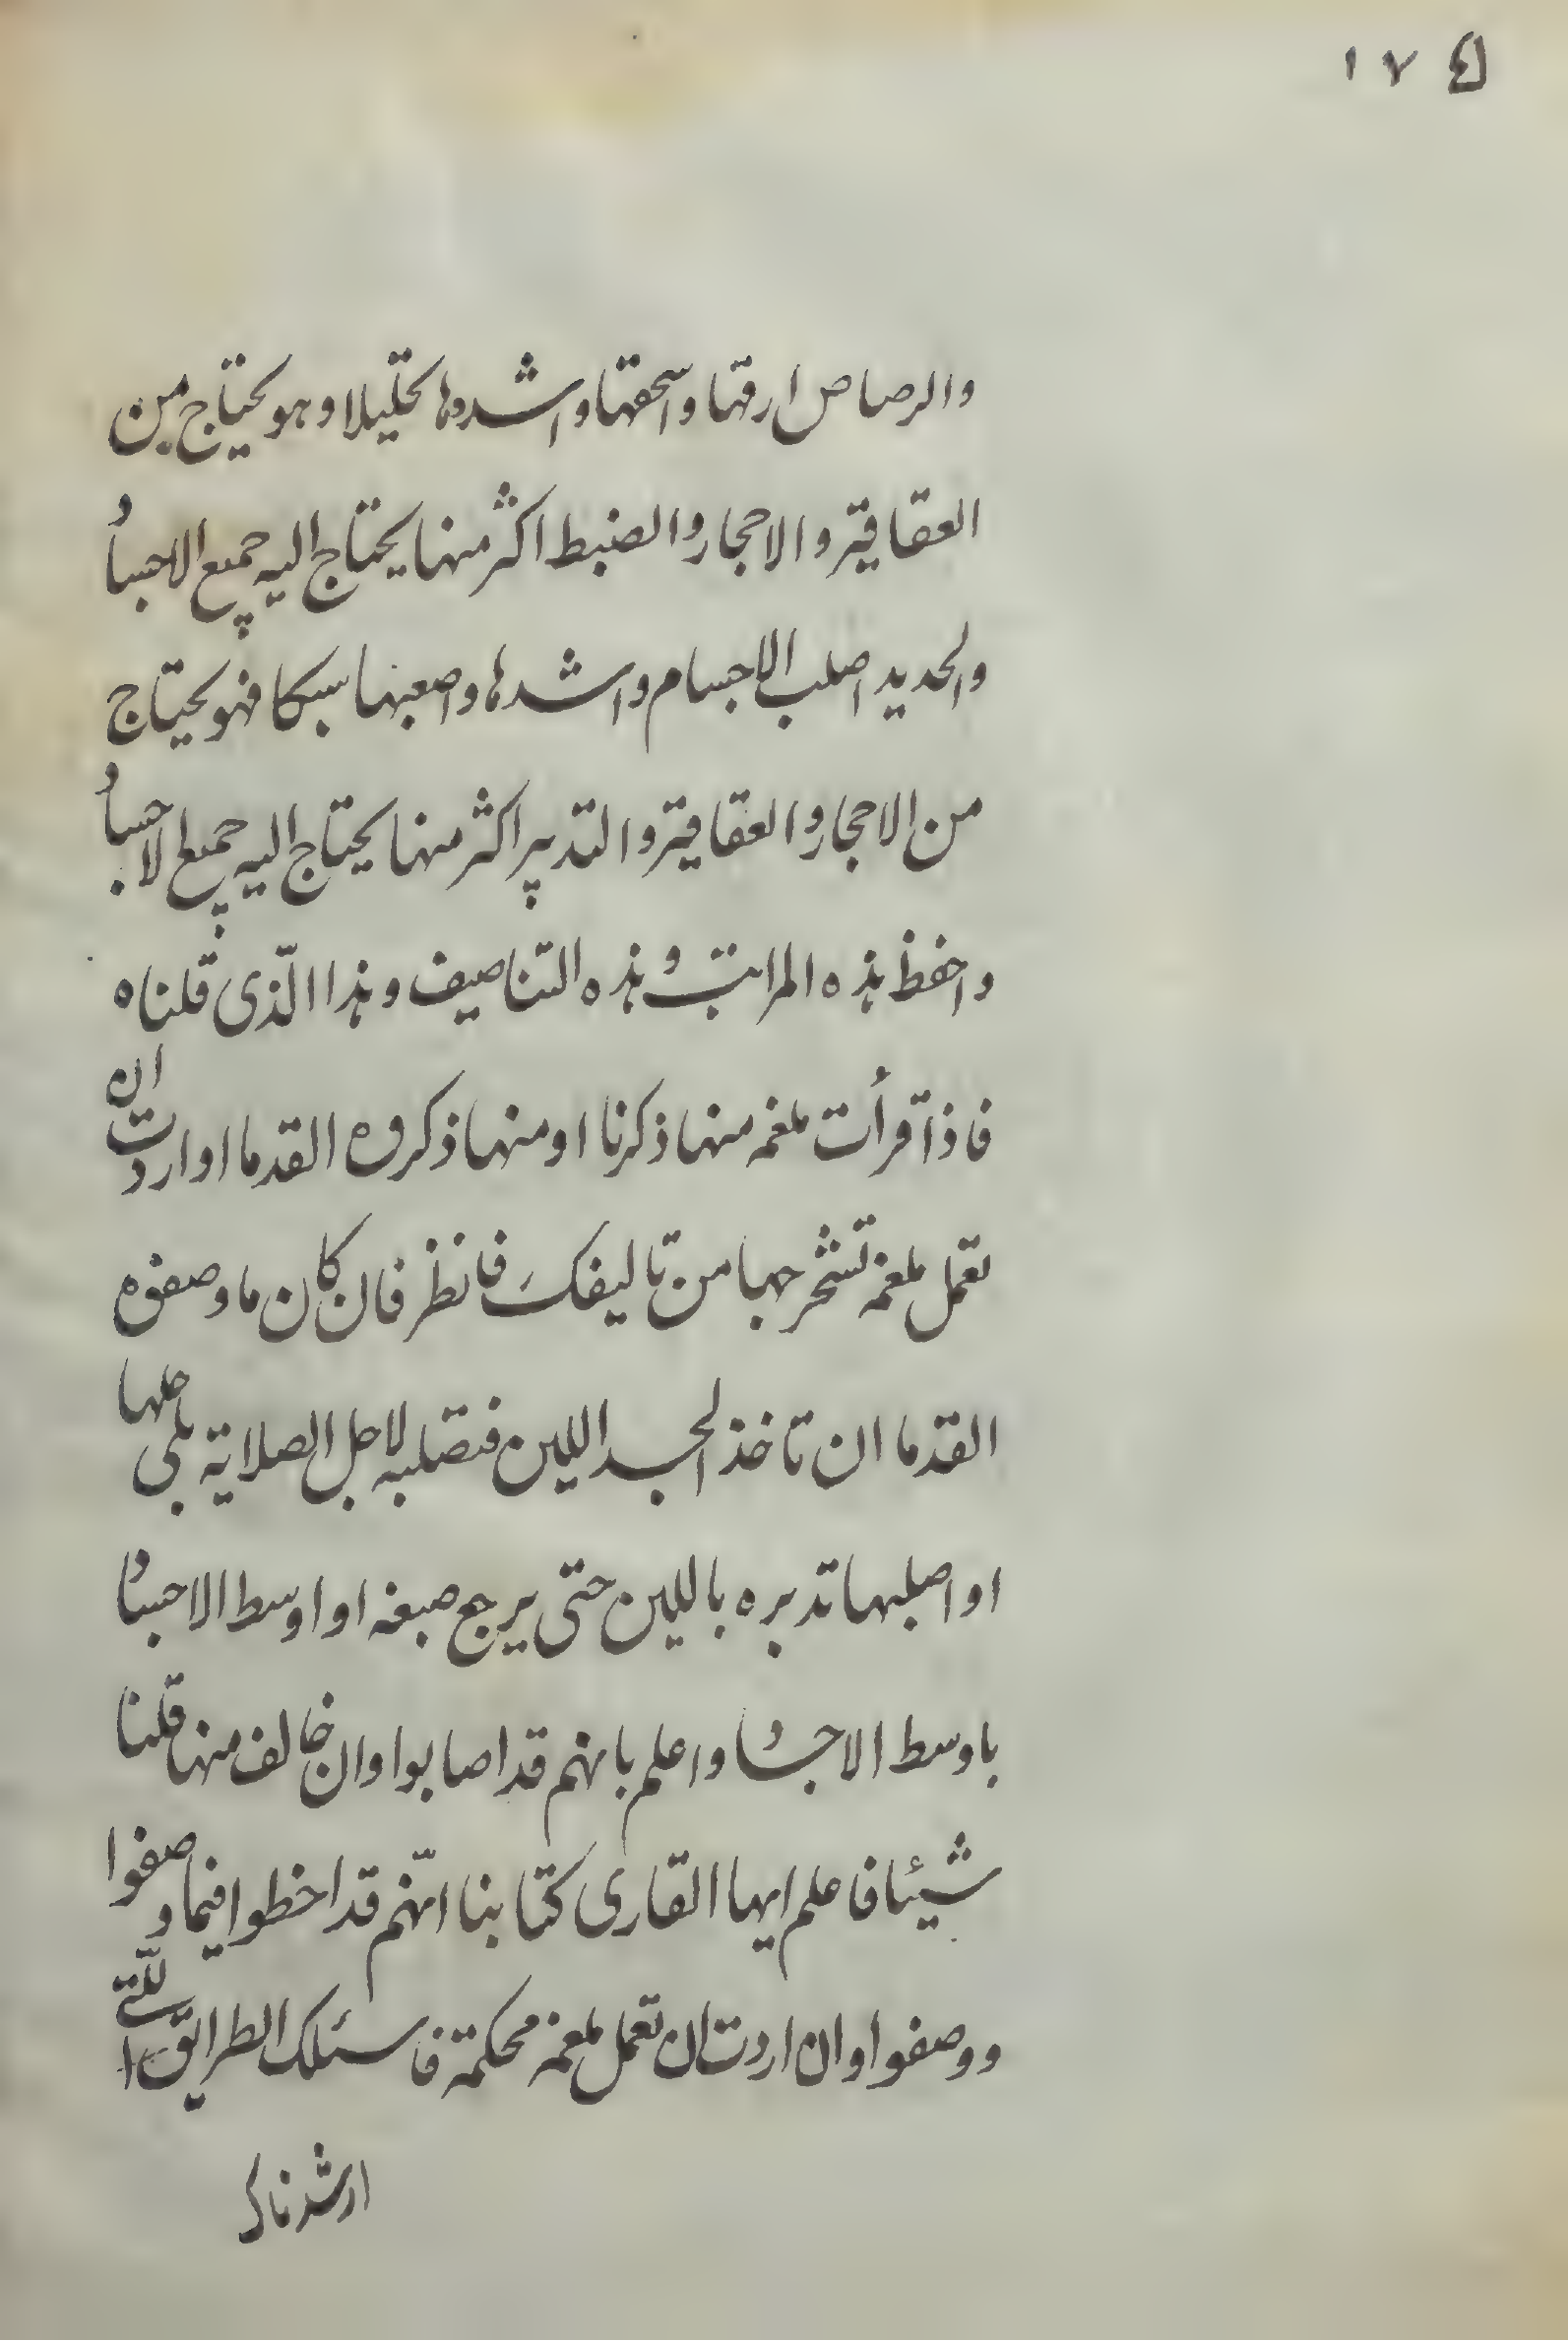 ١٧٤
والرصاص ارقها واسحقها واشدها تحليلا وهو يحتاج من
العقاقير والاحجار والضبط اكثر منها يحتاج اليه جميع الاجساد
والحديد اصلب الاجسام واشدها واصعبها سبكا فهو يحتاج
من الاحجار والعقاقير والتدبير اكثر منها يحتاج اليه جميع الاجساد
واحفظ هذه المراتب وهذه التناصيف وهذا الّذى قلناه
فاذا قرأت ملغمه منها ذكرنا او منها ذكروه القدما او اردت ان
تعمل ملغمة تستخرجها من تاليفك فانظر فان كان ما وصفوه
القدما ان تاخذ الجسد اللين فتصلبه لاجل الصلاية
او اصلبها تدبره باللين حتى يرجع صبغه او اوسط الاجساد
باوسط الاجساد واعلم بانهم قد اصابوا وان خالف منها قلنا
شيئا فاعلم ايها القارى كتابنا انّهم قد اخطوا فيما وصفوا
ووصفوا وان اردت ان تعمل ملغمة محكمة فاسئلك الطرايق الّتى
ارشدناك